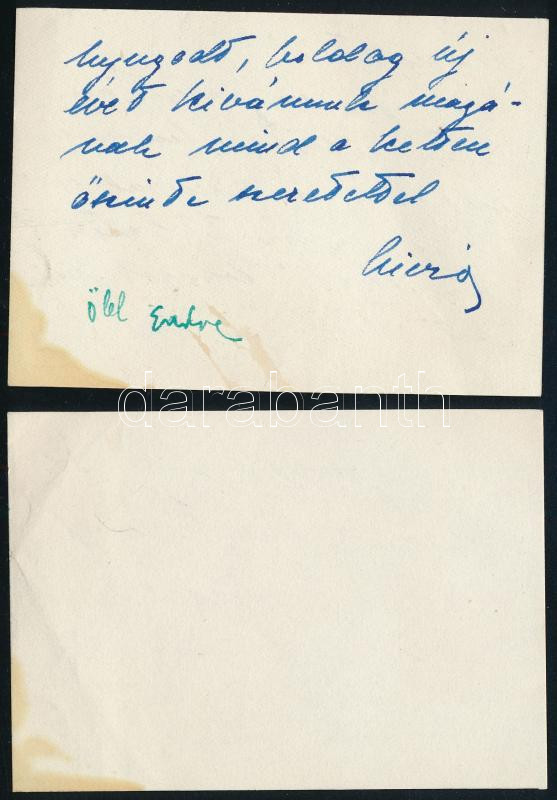 nyugodt, boldog új
évet kívánunk magá-
nak mind a ketten
őszinte szeretettel
Öll Endre
darabanth